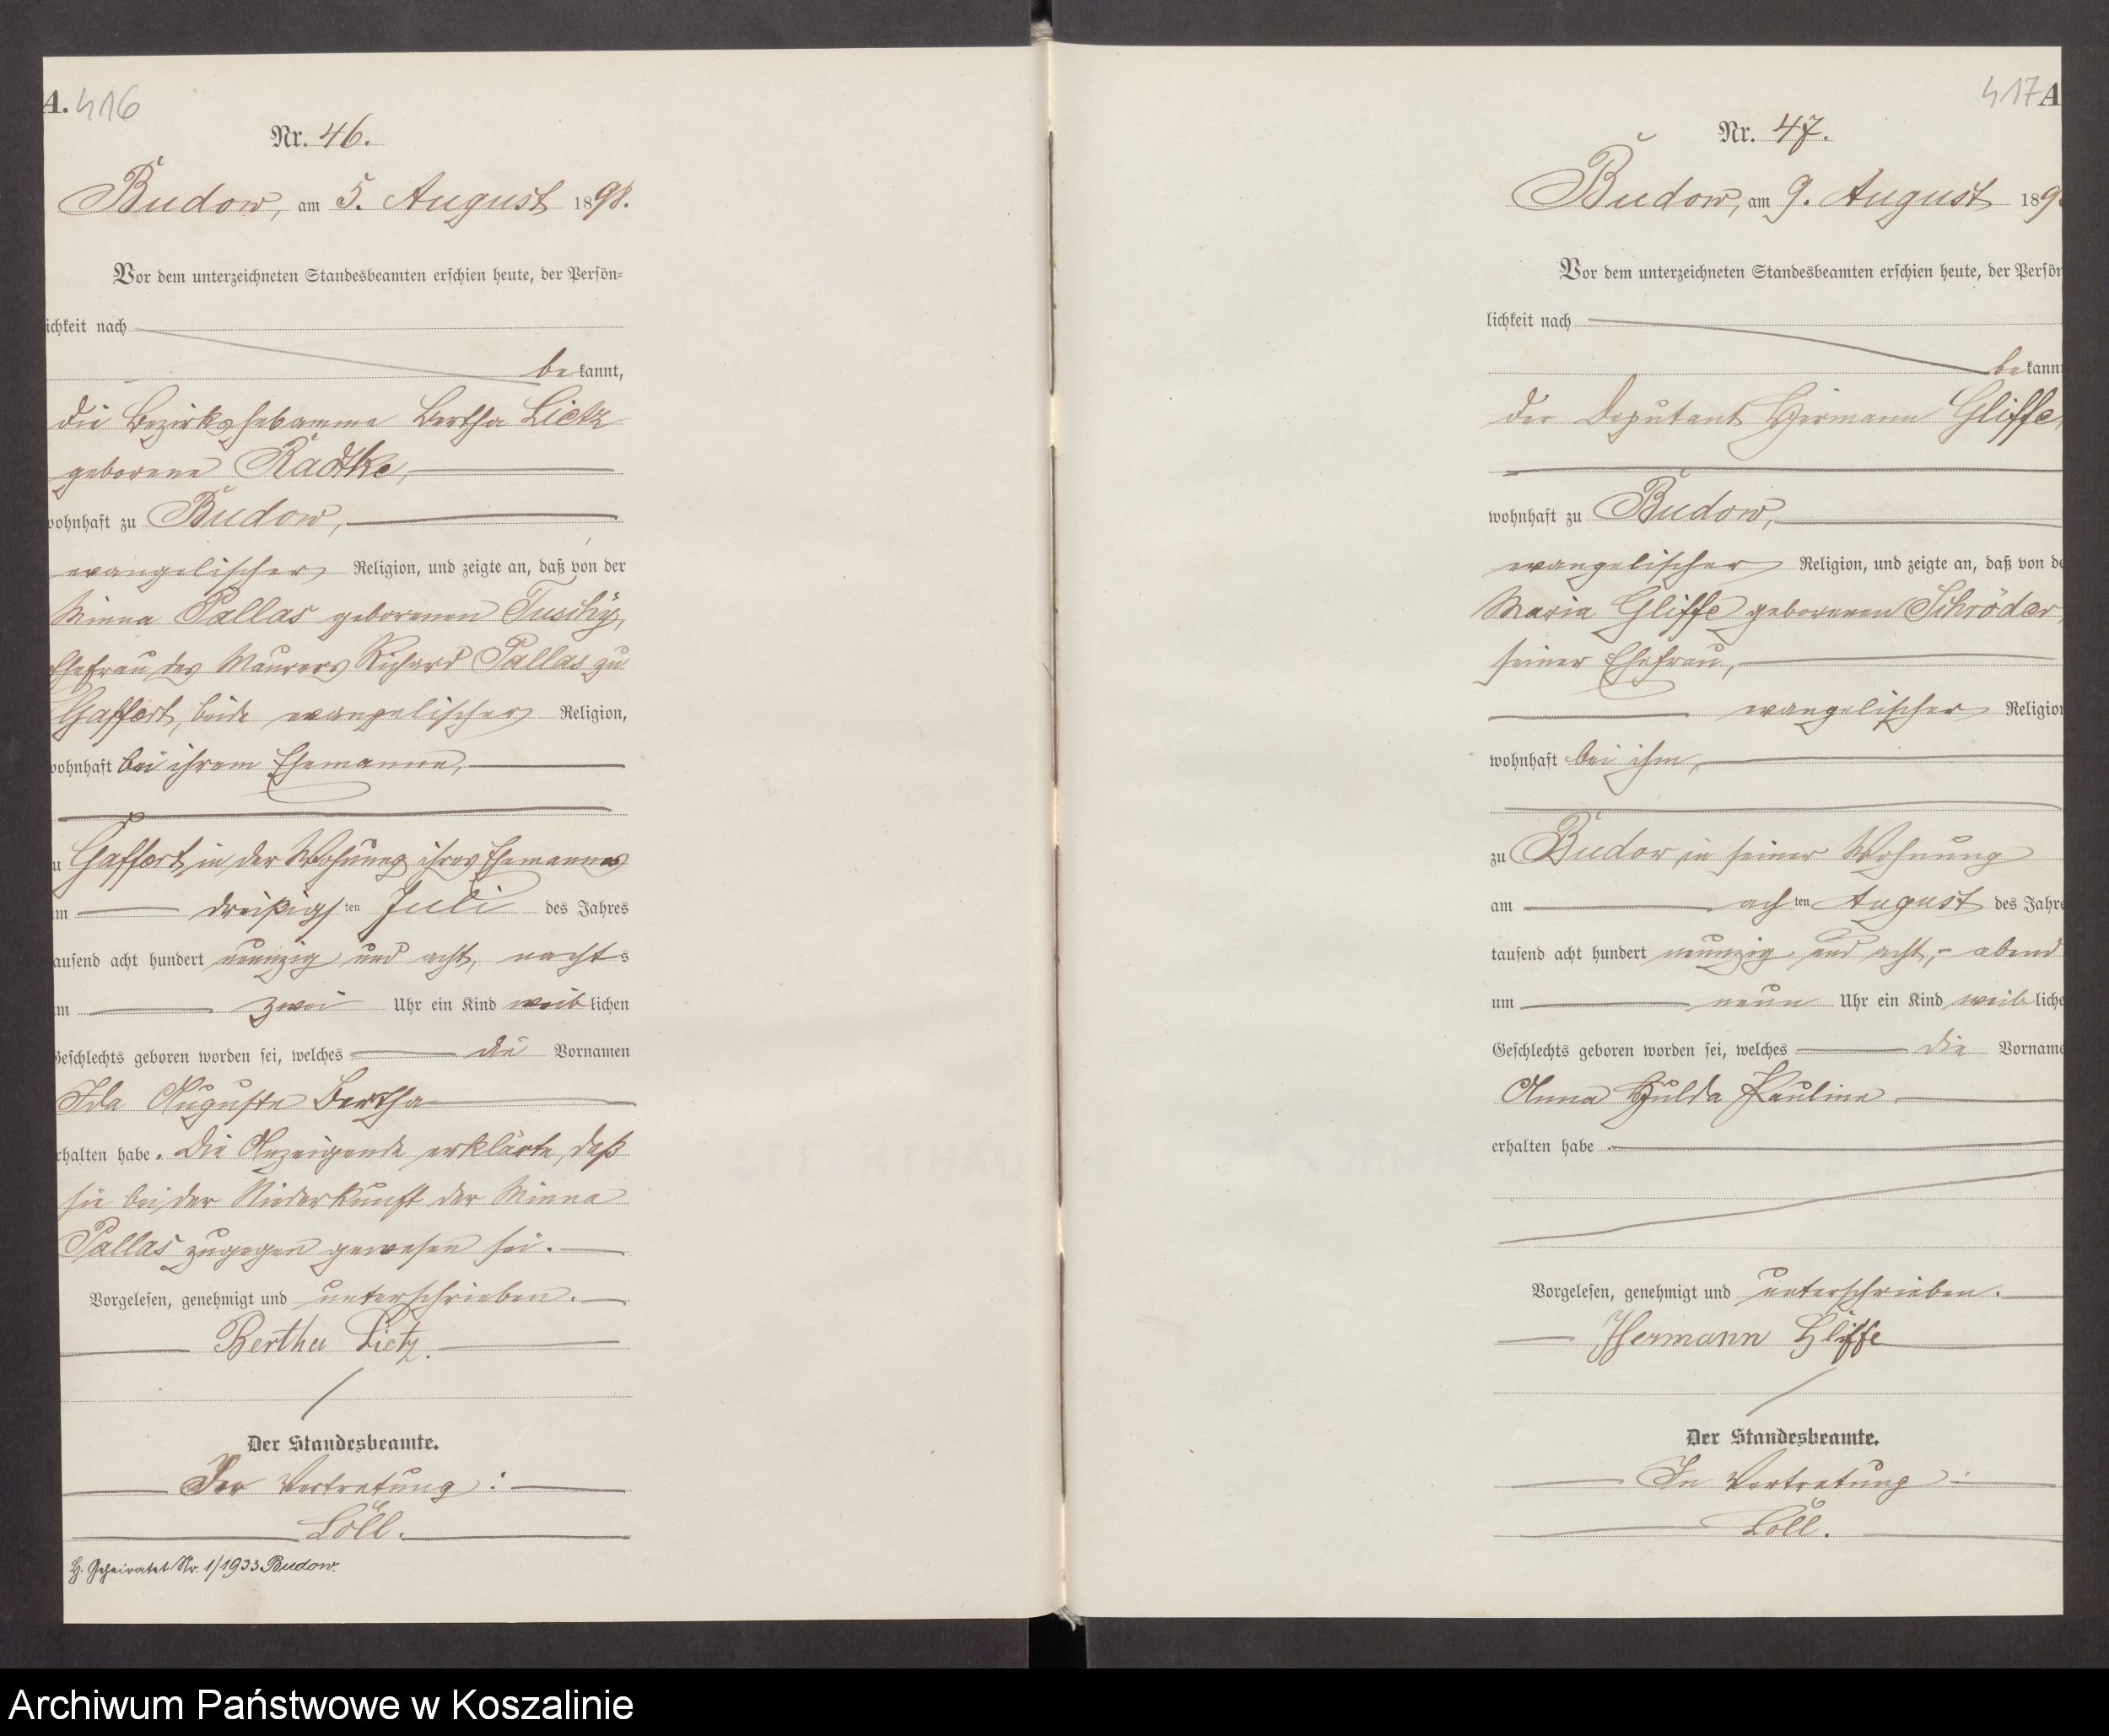 A. 416
Nr. 46.
Budow, am 5. August 1898.
Vor dem unterzeichneten Standesbeamten erschien heute, der Persön-
ichkeit nach
bekannt,
die Bezirkshebamme Bertha Lietz
geborene Radtke,
wohnhaft zu Budow,
evangelischer Religion, und zeigte an, daß von der
Minna Pallas geborenen Tuschÿ,
Ehefrau des Maurers Richard Pallas zu
Gaffert, beide evangelischer Religion,
wohnhaft bei ihrem Ehemanne,
zu Gaffert, in der Wohnung ihres Ehemannes
am dreißigsten Juli des Jahres
tausend acht hundert neunzig und acht, nachts
um zwei Uhr ein Kind weiblichen
Geschlechts geboren worden sei, welches die Vornamen
Ida Auguste Bertha
erhalten habe. Die Anzeigende erklärte, daß
sie bei der Niederkunft der Minna
Pallas zugegen gewesen sei.
Vorgelesen, genehmigt und unterschrieben.
Bertha Lietz.
Der Standesbeamte.
In Vertretung:
Löll.
H. Geheiratet Nr. 1/1933 Budow.
417 A
Nr. 47.
Budow, am 9. August 189
Vor dem unterzeichneten Standesbeamten erschien heute, der Persön
lichkeit nach
bekann
der Deputant Hermann Gliffe,
wohnhaft zu Budow,
evangelischer Religion, und zeigte an, daß von de
Maria Gliffe geborenen Schröder,
seiner Ehefrau,
evangelischer Religion
wohnhaft bei ihm,
zu Budow in seiner Wohnung
am achten August des Jahre
tausend acht hundert neunzig und acht, abend
um neun Uhr ein Kind weibliche
Geschlechts geboren worden sei, welches die Vorname
Anna Hulda Pauline
erhalten habe.
Vorgelesen, genehmigt und unterschrieben.
Hermann Gliffe
Der Standesbeamte.
In Vertretung:
Löll.
Archiwum Państwowe w Koszalinie